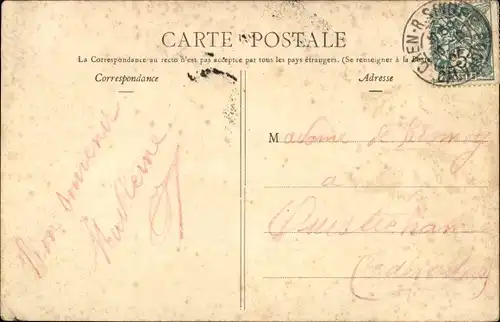 CARTE POSTALE
La Correspondance au recto n'est pas acceptée par tous les pays étrangers. (Se renseigner à la Poste
Correspondance
Adresse
Bon souvenir
Madame de
à
Ouistreham
(Calvados)
CAEN-R.S
5